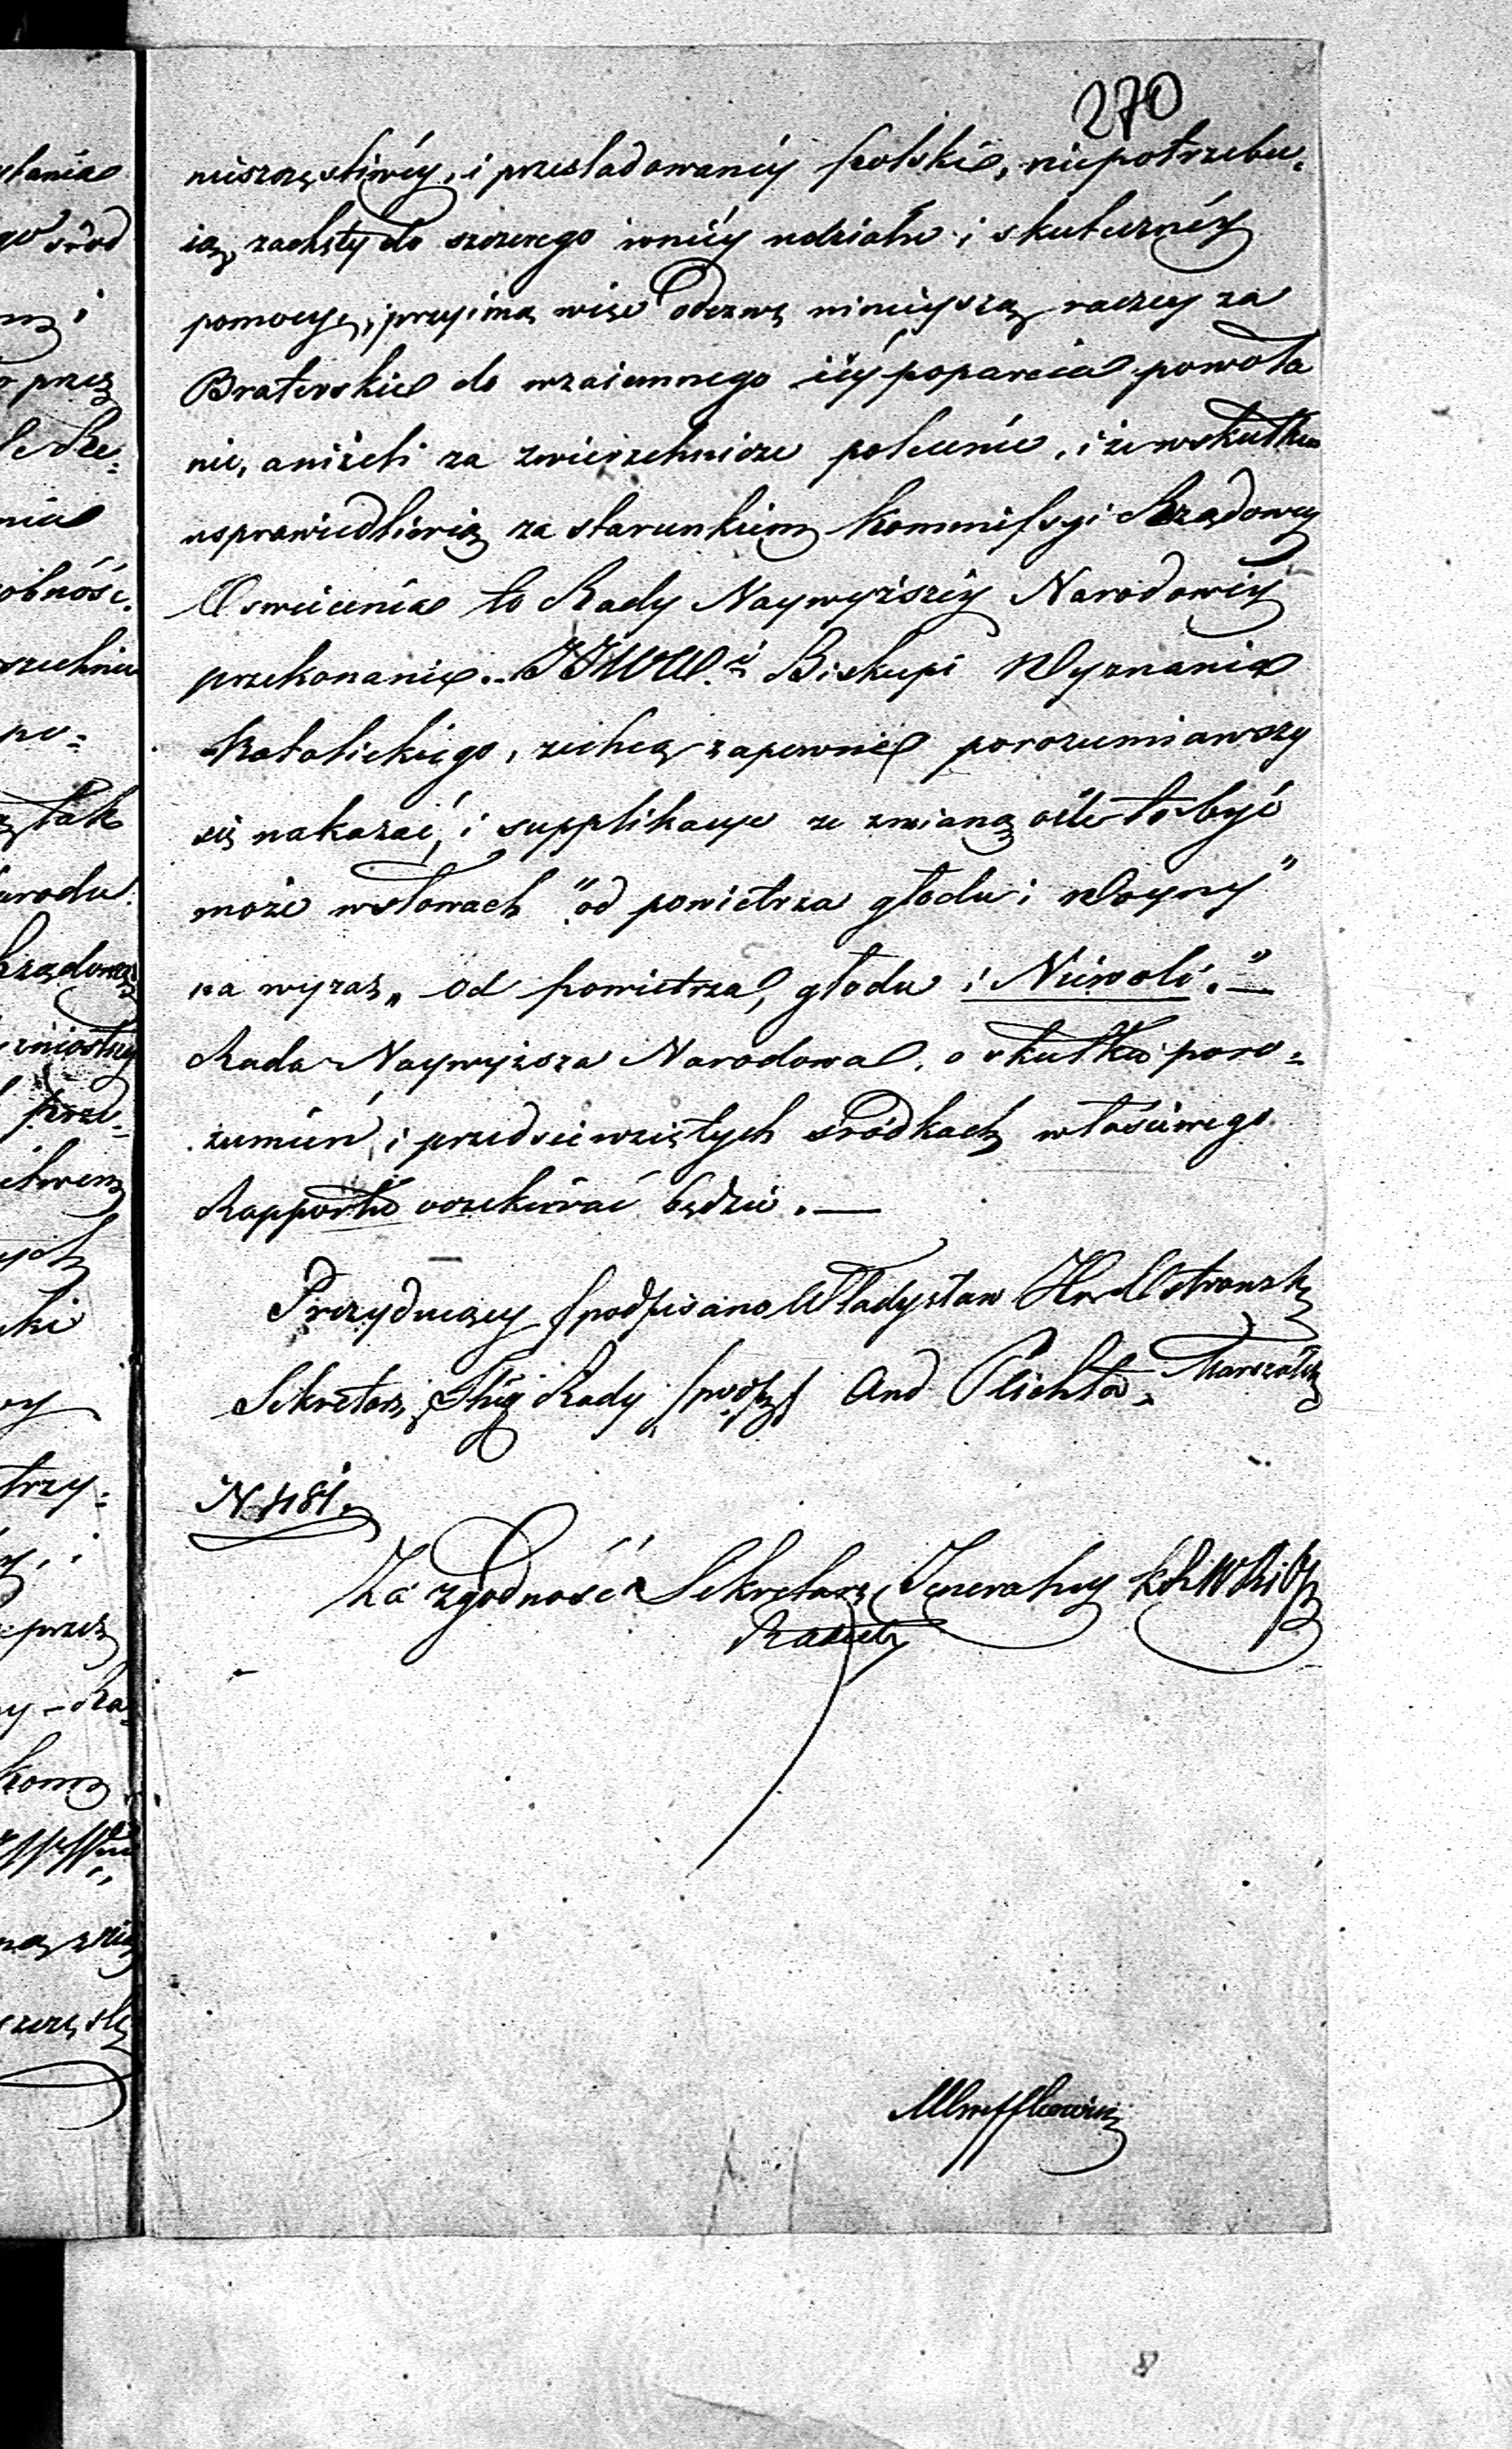 270
nieszczęśliwéy, i prześladowanéy Polski, niepotrzebu-
ią zachęty do szczerego wniéy udziału i skutecznéy
pomocy, i przyimą więc Odezwę ninieyszą raczey za
Braterskie do wzaiemnego iéy poparcia powoła
nie, aniżeli za zwierzchnicze polecenie, i że wskutku
usprawiedliwią za starunkiem Kommissyi Rządowey
Oswiecenia to Rady Naywyższéy Narodowéy
przekonanie. JJWW. i Biskupi Wyznania
Katolickiego, zechcą zapewnie porozumiawszy
się nakazać, i supplikacye ze zmianą ile to być
może wsłowach "od powietrza głodu i Woyny"
na wyraz „ Od powietrza, głodu i Niewoli." —
Rada Naywyższa Narodowa, o skutku poro-
zumień i przedsięwziętych srodkach właściwego
Rapportu oczekiwać będzie. —
Prezyduiący /podpisano/ Władysław Hr. Ostrowski
Sekretarz Jlny Rady /podp:/ And Plichta. Marszałek
N 481.
Za zgodność Sekretarz Jeneralny